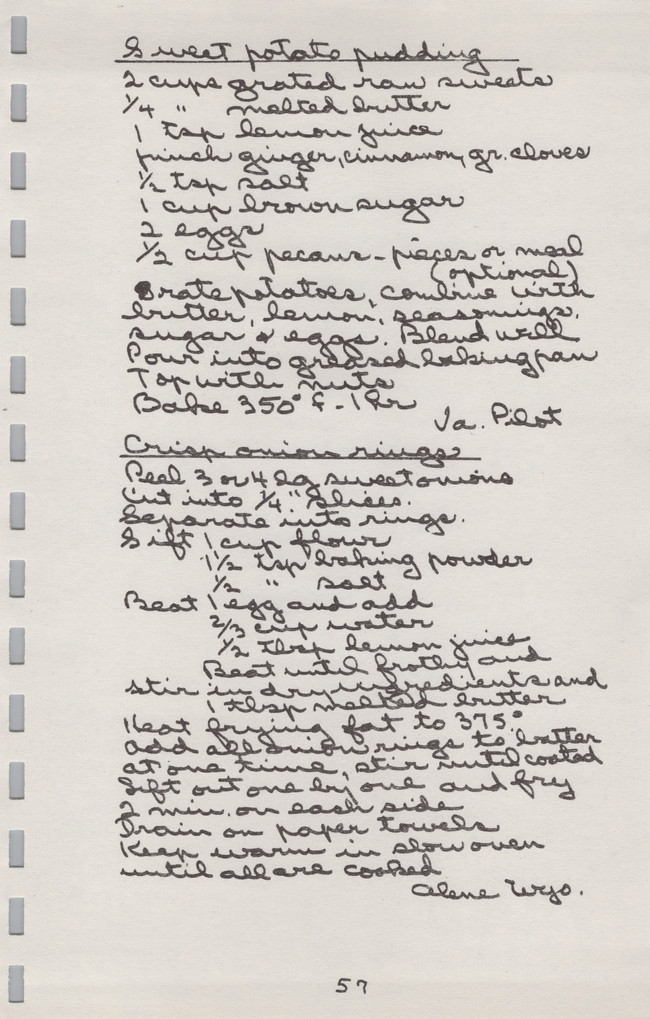 Sweet potato pudding
2 cups grated raw sweets
1/4 " melted butter
1 tsp lemon juice
pinch ginger, cinnamon, gr. cloves
1/2 tsp salt
1 cup brown sugar
2 eggs
1/2 cup pecans - pieces or meal
(optional)
Grate potatoes, combine with
butter, lemon, seasonings,
sugar & eggs. Blend well
Pour into greased baking pan
Top with nuts
Bake 350° f - 1 hr
Va. Pilot
Crisp onion rings
Peel 3 or 4 lg sweet onions
Cut into 1/4" slices.
Separate into rings.
Sift 1 cup flour
1 1/2 tsp baking powder
1/2 " salt
Beat 1 egg and add
2/3 cup water
1/2 tbsp lemon juice
Beat until frothy and
stir in dry ingredients and
1 tbsp melted butter
Heat frying fat to 375°
add all onion rings to batter
at one time, stir until coated
Lift out one by one and fry
2 min. on each side
Drain on paper towels
Keep warm in slow oven
until all are cooked
Alene Wyo.
57